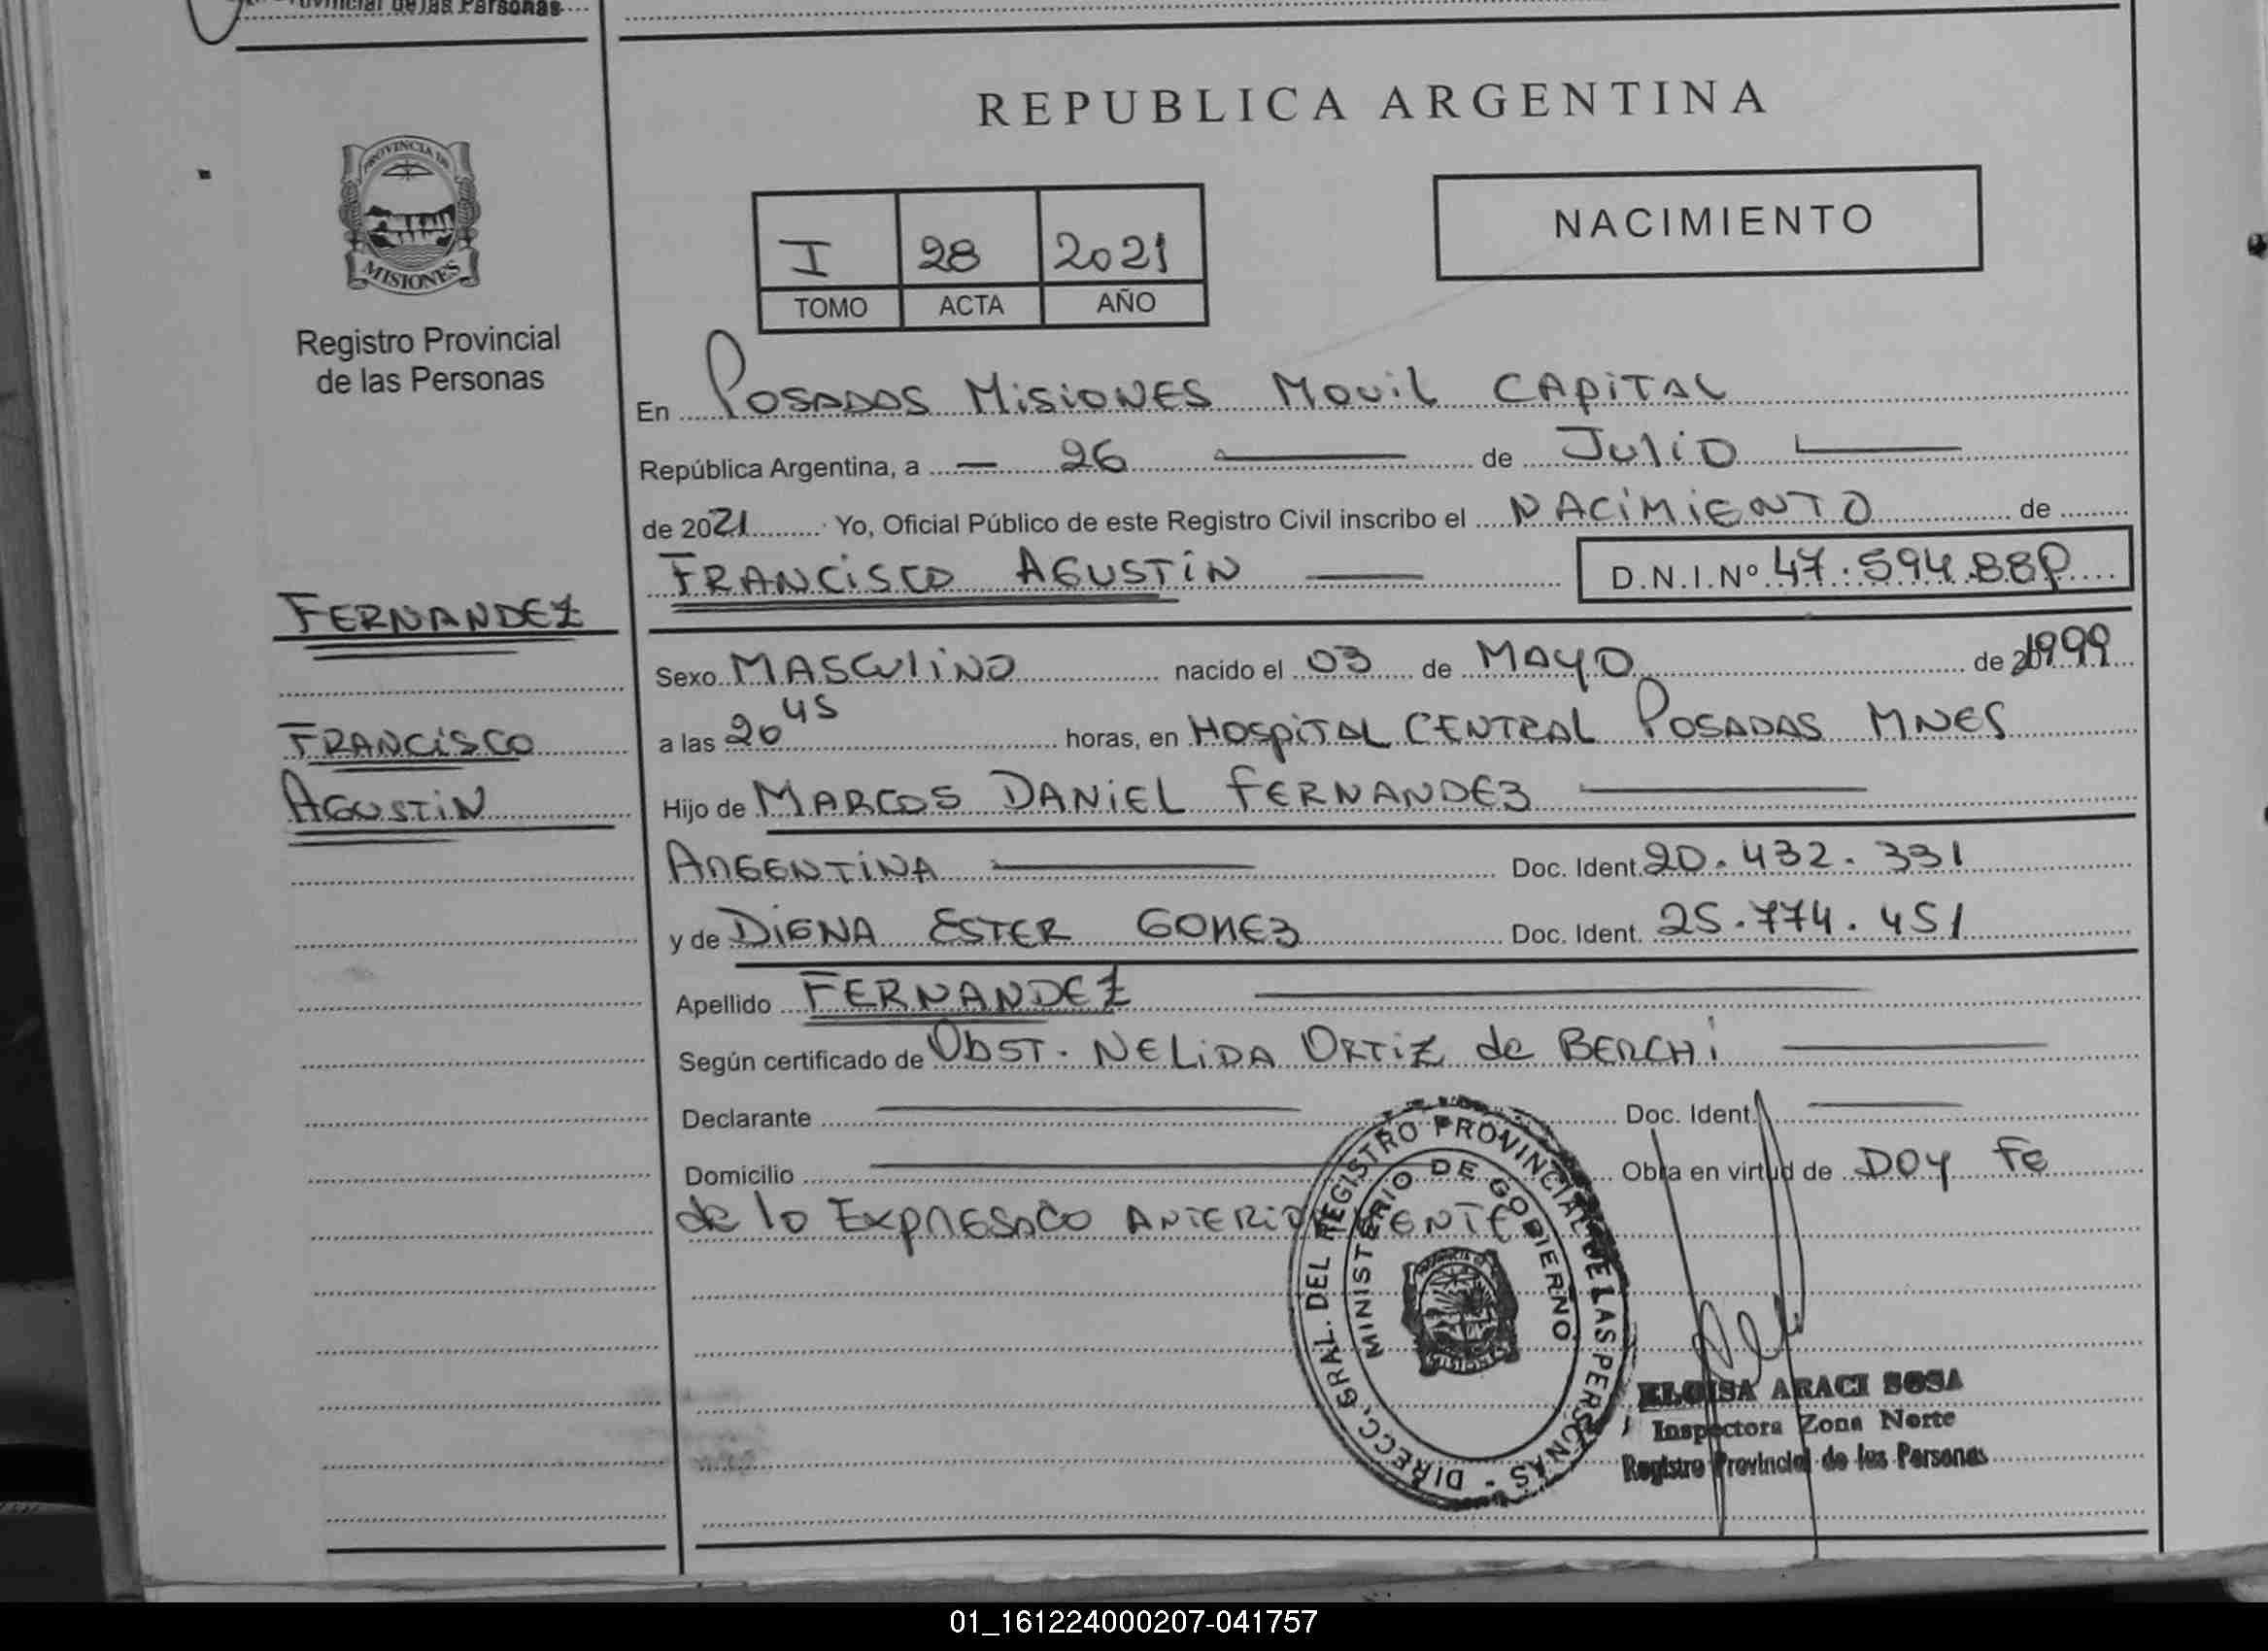 Provincial de las Personas
REPUBLICA ARGENTINA
PROVINCIA DE
MISIONES
Registro Provincial
de las Personas
I 28 2021
TOMO ACTA AÑO
NACIMIENTO
En POSADAS MISIONES MOVIL CAPITAL
República Argentina, a — 26 de JULIO
de 2021 Yo, Oficial Público de este Registro Civil inscribo el NACIMIENTO de
FRANCISCO AGUSTIN D.N.I.Nº 47.594.88
FERNANDEZ
Sexo MASCULINO nacido el 03 de MAYO de 1999
FRANCISCO
a las 20 45 horas, en HOSPITAL CENTRAL POSADAS MNES
AGUSTIN
Hijo de MARCOS DANIEL FERNANDEZ
ARGENTINA Doc. Ident. 20.432.331
y de DIGNA ESTER GOMEZ Doc. Ident. 25.774.451
Apellido FERNANDEZ
Según certificado de Obst. NELIDA ORTIZ de BERCHI
Declarante Doc. Ident.
Domicilio Obra en virtud de DOY FE
de lo EXPRESADO ANTERIORMENTE
DIRECC. GRAL. DEL REGISTRO PROVINCIAL DE LAS PERSONAS -
MINISTERIO DE GOBIERNO
ELOISA ARACI SOSA
Inspectora Zona Norte
Registro Provincial de las Personas
01_161224000207-041757